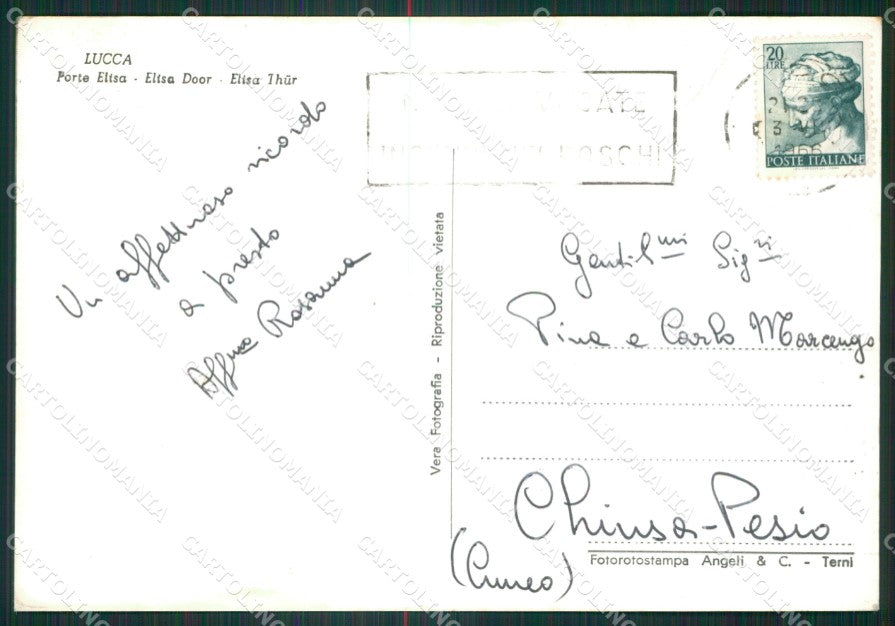 LUCCA
Porte Elisa - Elisa Door - Elisa Thür
Un affettuoso ricordo
a presto
Aff.ma Rosanna
Vera Fotografia - Riproduzione vietata
20
LIRE
POSTE ITALIANE
1966
BOSCHI
Gentil.mi Sig.ri
Pina e Carlo Marcengo
Chiusa-Pesio
(Cuneo)
Fotorotostampa Angeli & C. - Terni
CARTOLINOMANIA